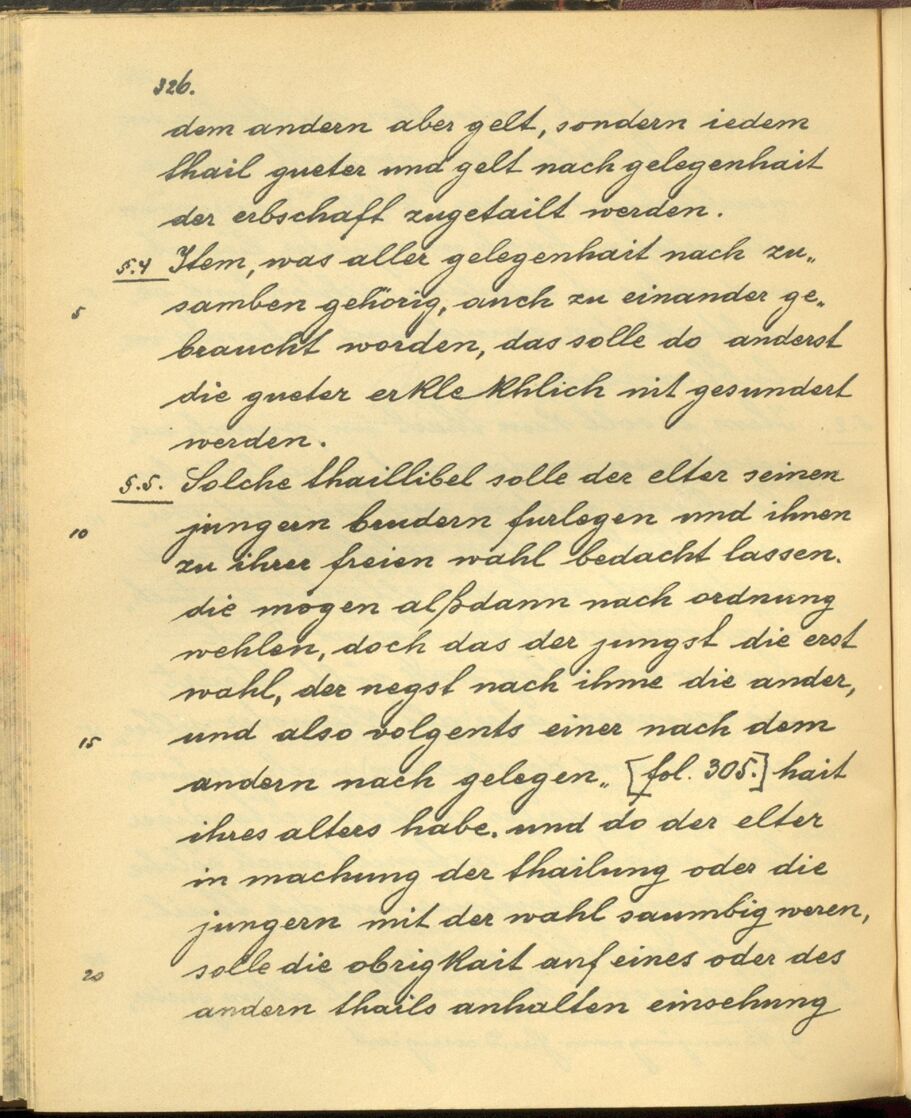 326.
dem andern aber gelt, sondern iedem
thail gueter und gelt nach gelegenhait
der erbschaft zugetailt werden.
§.4 Item, was aller gelegenhait nach zu„
5 samben gehörig, auch zu einander ge„
braucht worden, das solle do anderst
die gueter erklekhlich nit gesundert
werden.
§.5. Solche thaillibel solle der elter seinen
10 jungern brudern furlegen und ihnen
zu ihrer freien wahl bedacht lassen.
die mogen alßdann nach ordnung
wehlen, doch das der jungst die erst
wahl, der negst nach ihme die ander,
15 und also volgents einer nach dem
andern nach gelegen„ [fol. 305.] hait
ihres alters habe. und do der elter
in machung der thailung oder die
jungern mit der wahl saumbig weren,
20 solle die obrigkait auf eines oder des
andern thails anhalten einsehung